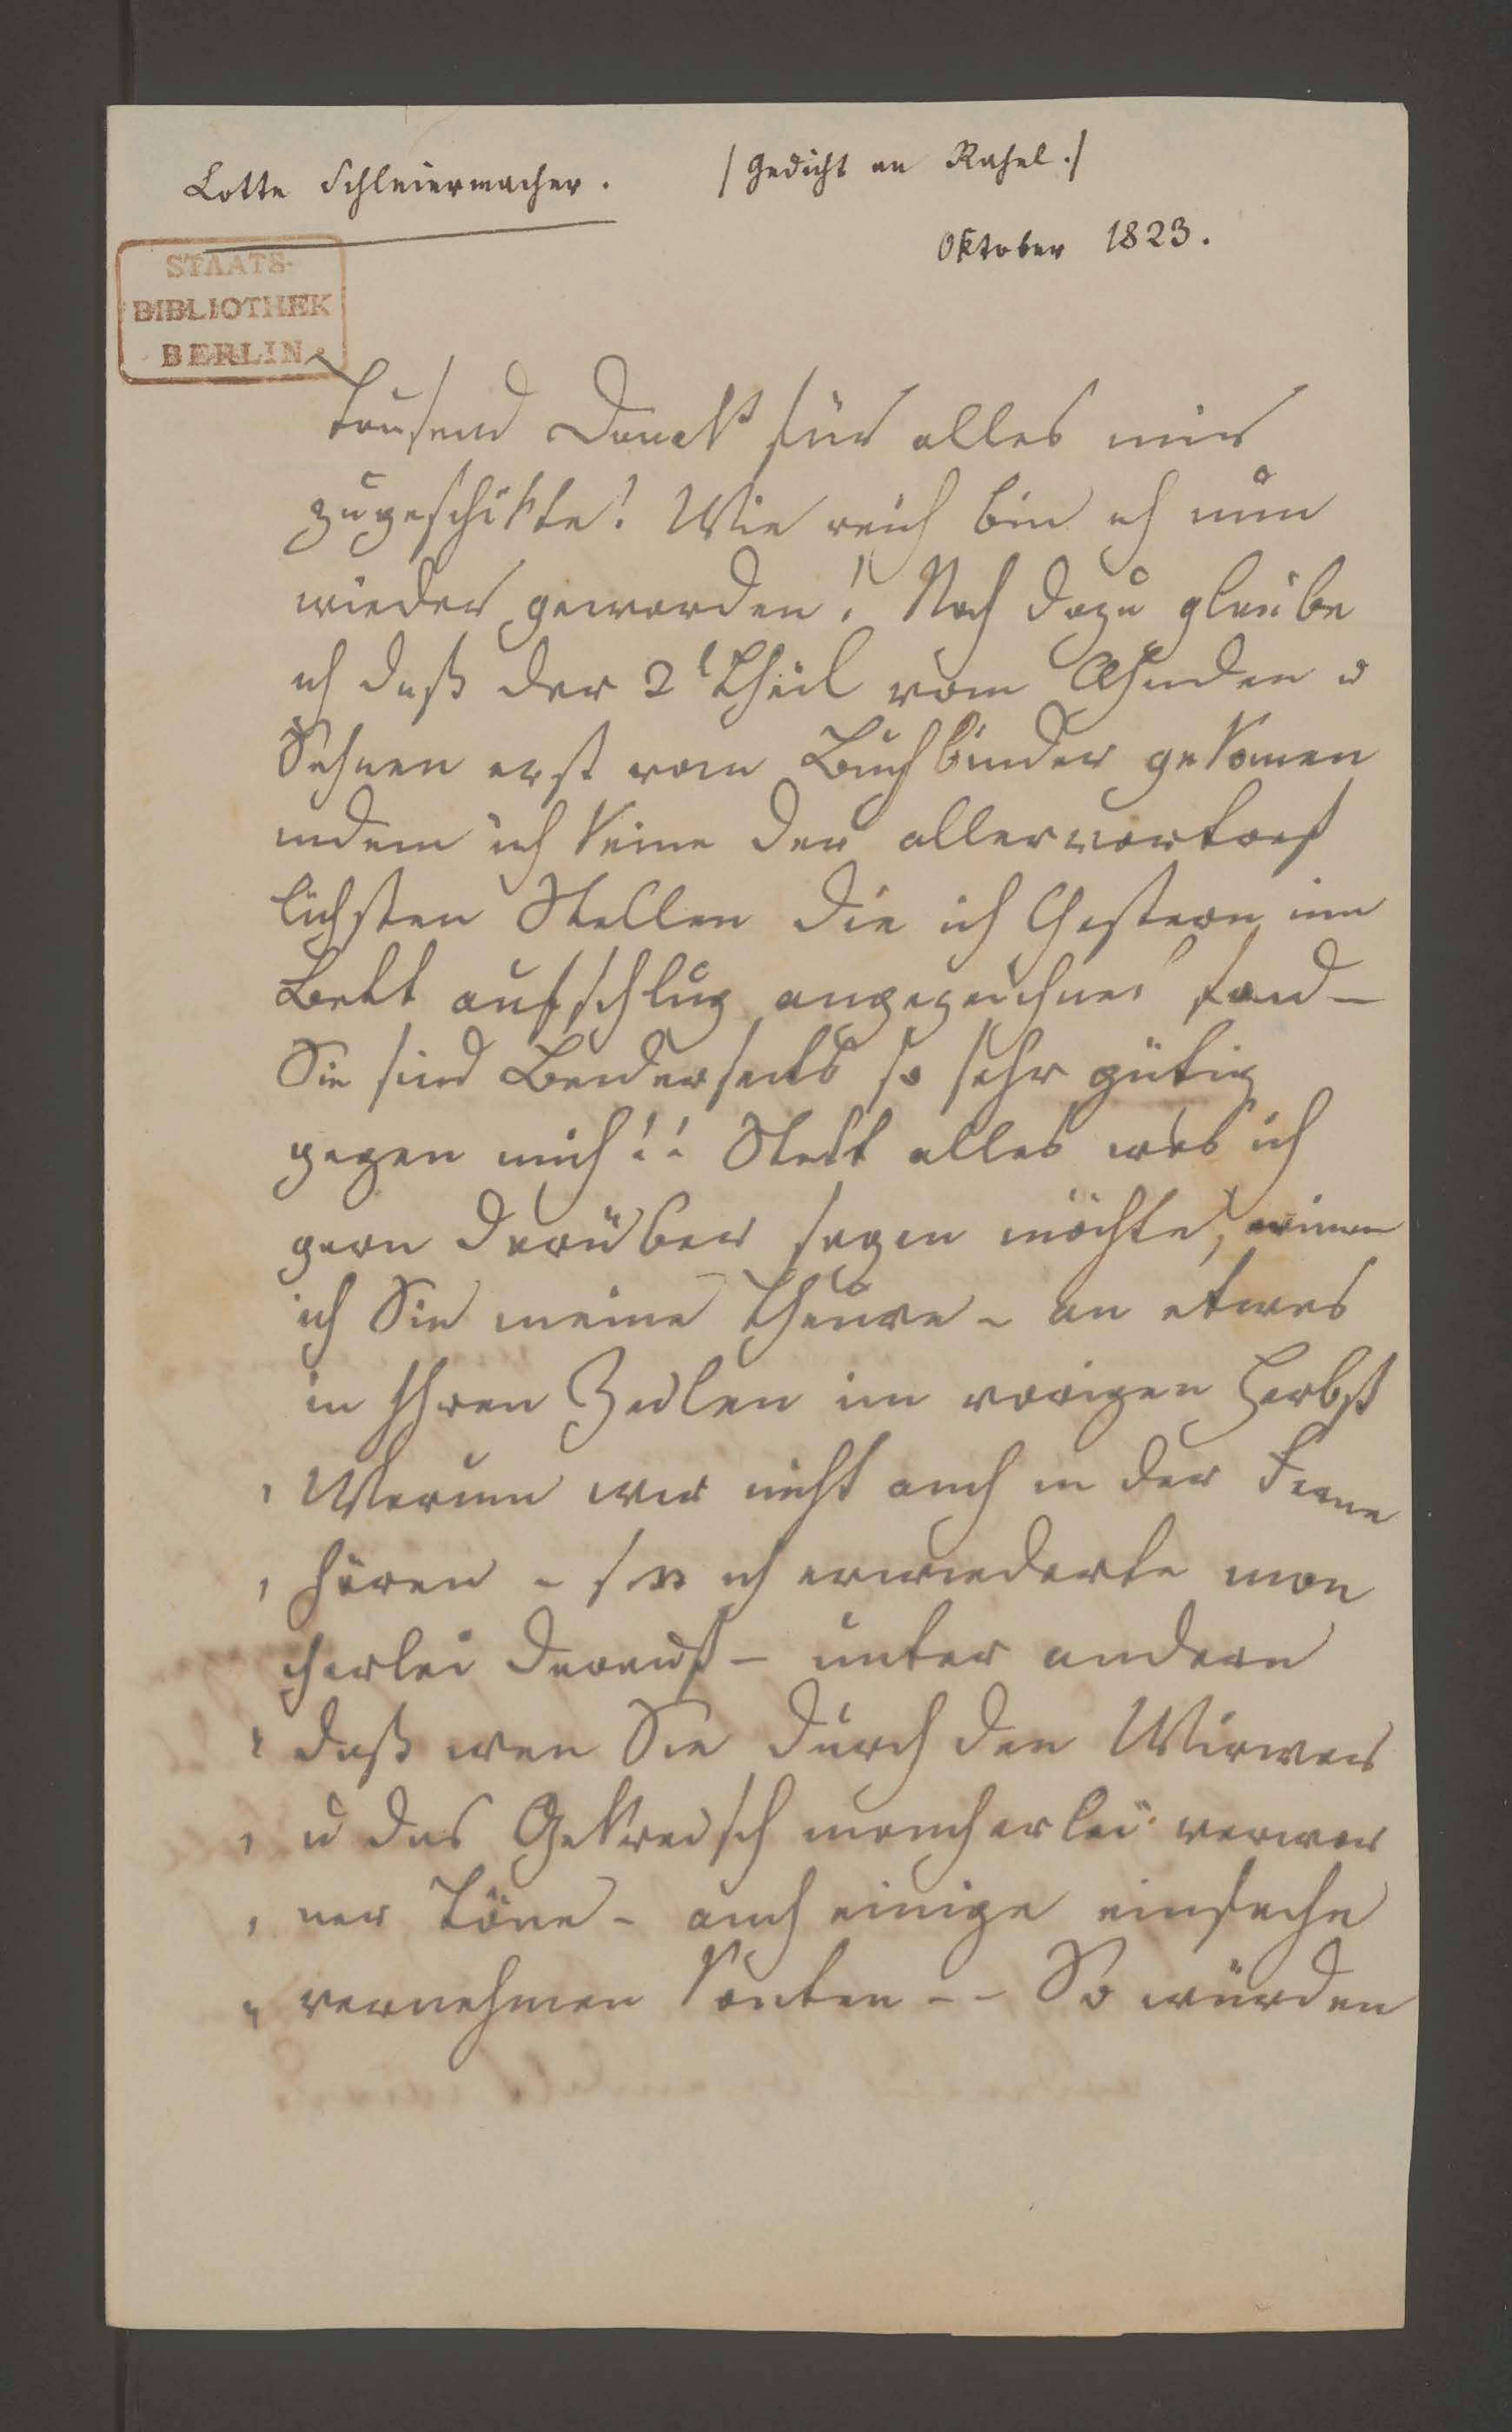 Lotte Schleiermacher.
/Gedicht an Rahel./
Oktober 1823.
STAATS-
BIBLIOTHEK
BERLIN
Tausend Danck für alles mir
zugeschikte! Wie reich bin ich nun
wieder geworden! Noch dazu glaube
ich daß der 2t Theil vom Ahnden u
Sehnen erst vom Buchbinder gekomen
indem ich keine der allervortref
lichsten Stellen die ich Gestern im
Bett aufschlug angezeichnet fand –
Sie sind Beiderseits so sehr gütig
gegen mich!! Statt alles was ich
gern darüber sagen möchte,
ich Sie meine Theure – an etwas
in Ihren Zeilen im vorigen Herbst
„ Warum wir nicht auch in der Ferne
„ hören – ich erwiederte man
cherlei darauf – unter andern
„ daß wen Sie durch den Wirwar
„ u das Gekreisch mancherlei verwor
„ ner Töne – auch einige einfache
„ vernehmen könten – – So würden